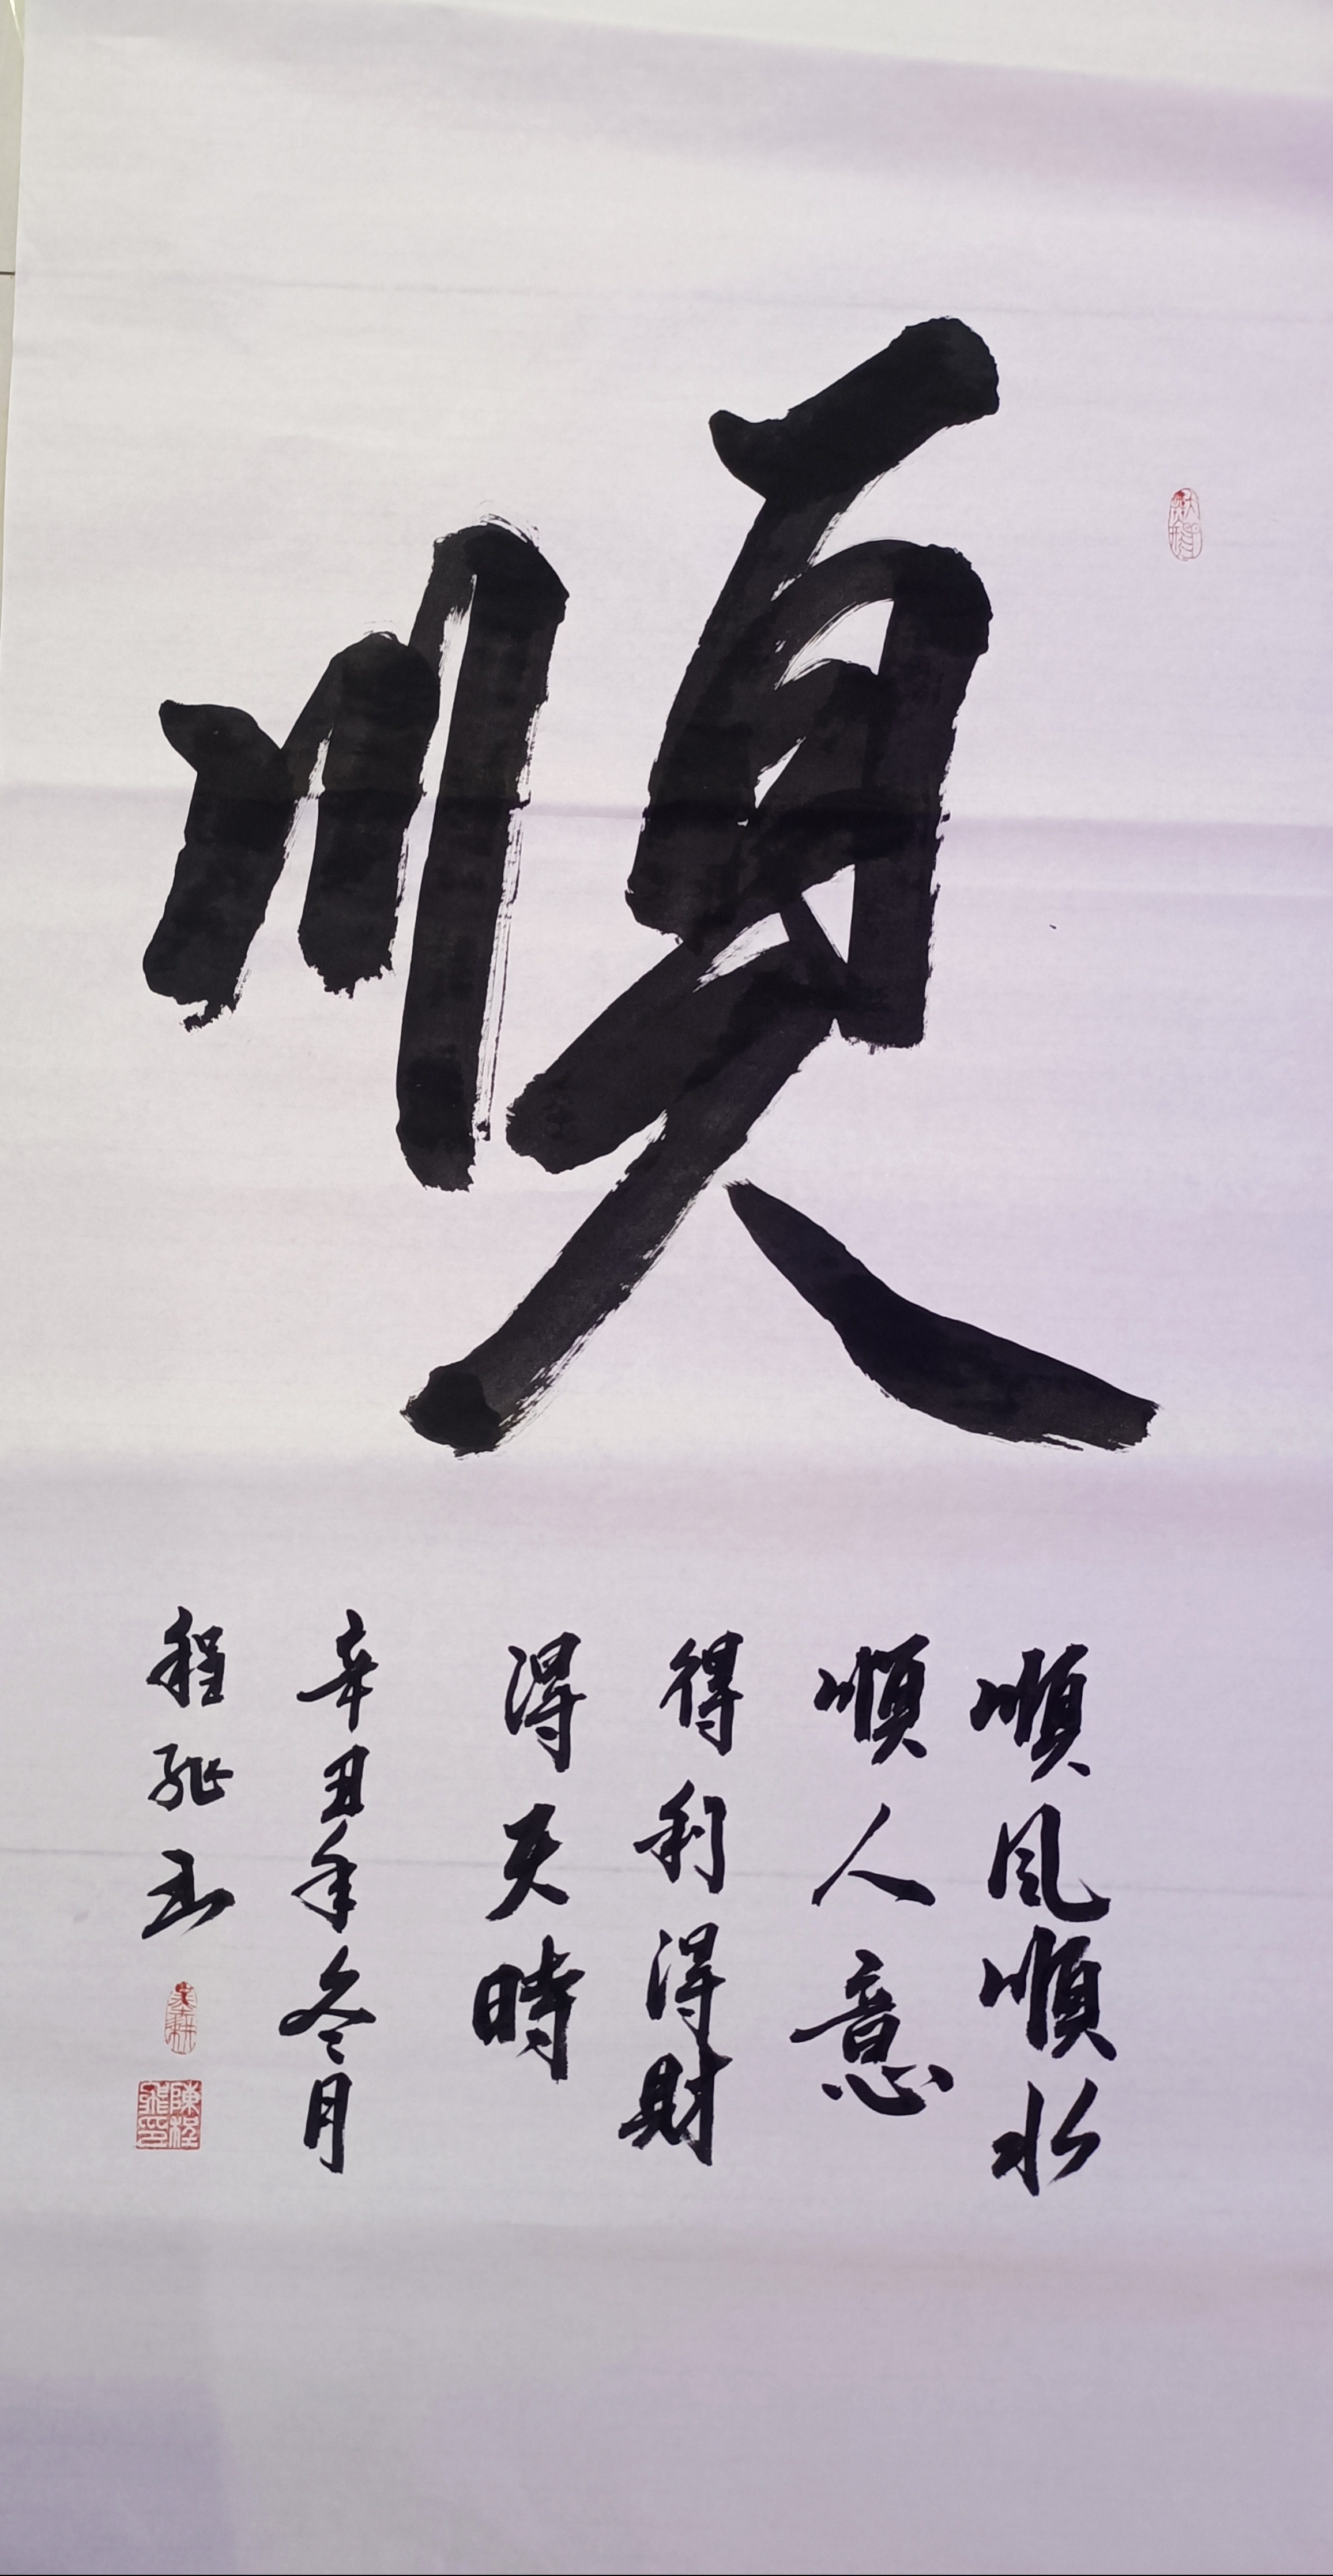 順
順风順水
順人意
得利得財
得天時
辛丑年冬月
程